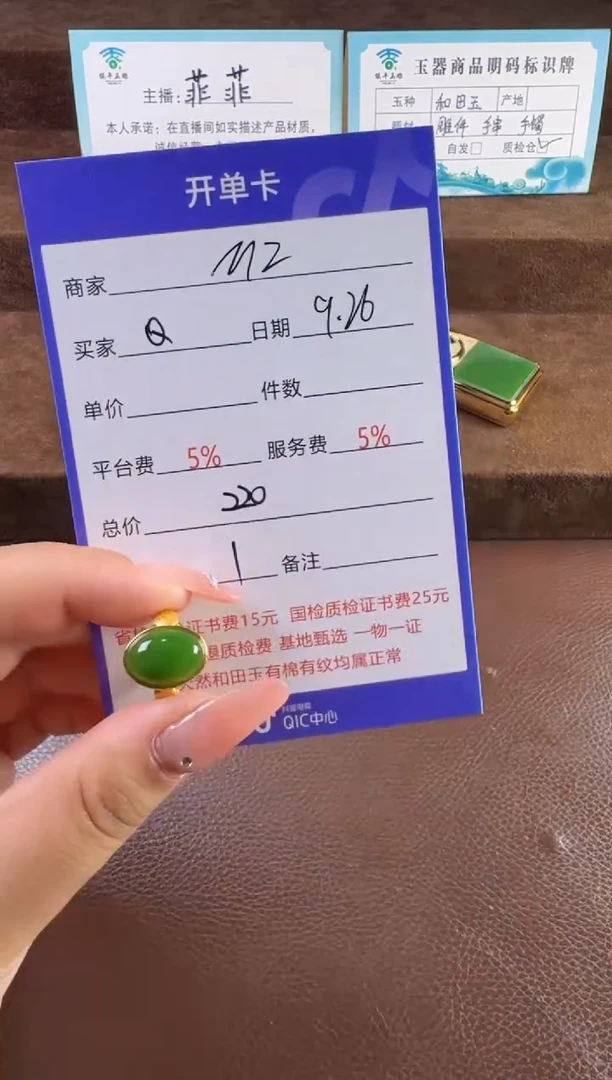 主播:菲菲
本人承诺:在直播间如实描述产品材质,
玉器商品明码标识牌
玉种 和田玉 产地
题材 雕件 手串 手镯
自发□ 质检仓☑
开单卡
商家 MZ
买家 Q 日期 9.26
单价 件数
平台费 5% 服务费 5%
总价 220
1 备注
证书费15元 国检质检证书费25元
退质检费 基地甄选 一物一证
天然和田玉有棉有纹均属正常
抖音电商
QIC中心